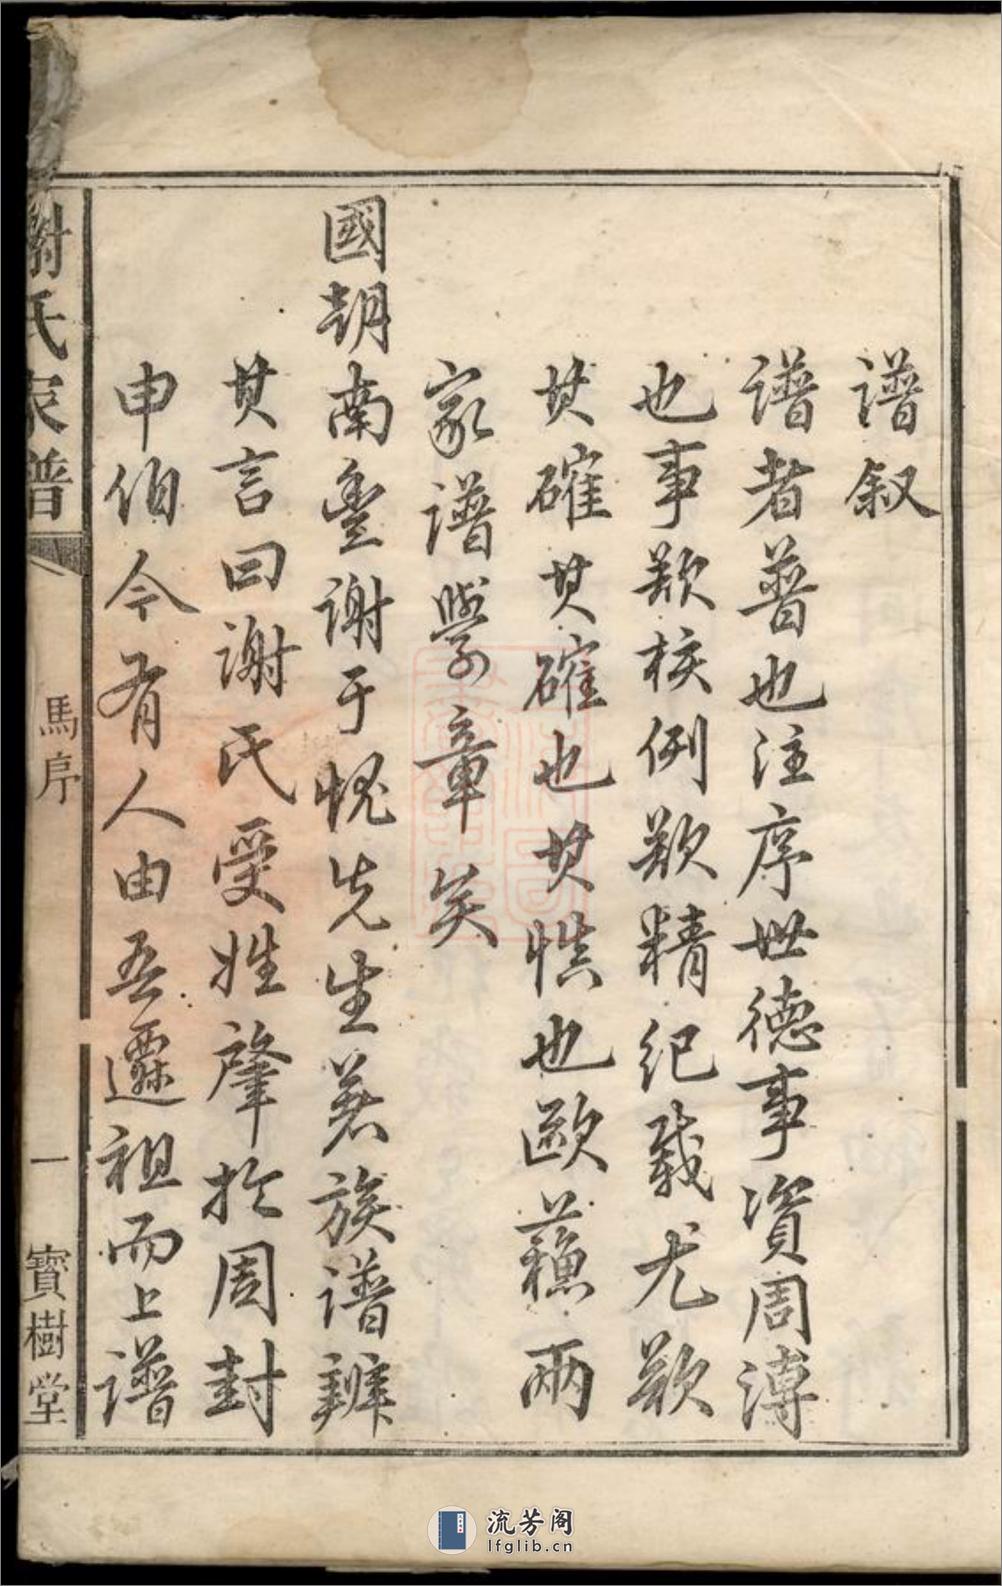 譜叙
譜者普也注序世德事資周溥
也事欵核例欵精纪载尤欵
其確其確也其慎也歐蘇兩
家譜學章矣
國朝南豐謝于愧先生著族譜辨
其言曰謝氏受姓肇扵周封
申伯今有人由吾遷祖而上譜
謝氏家譜
馬序
一
寶樹堂
流芳阁
lfglib.cn